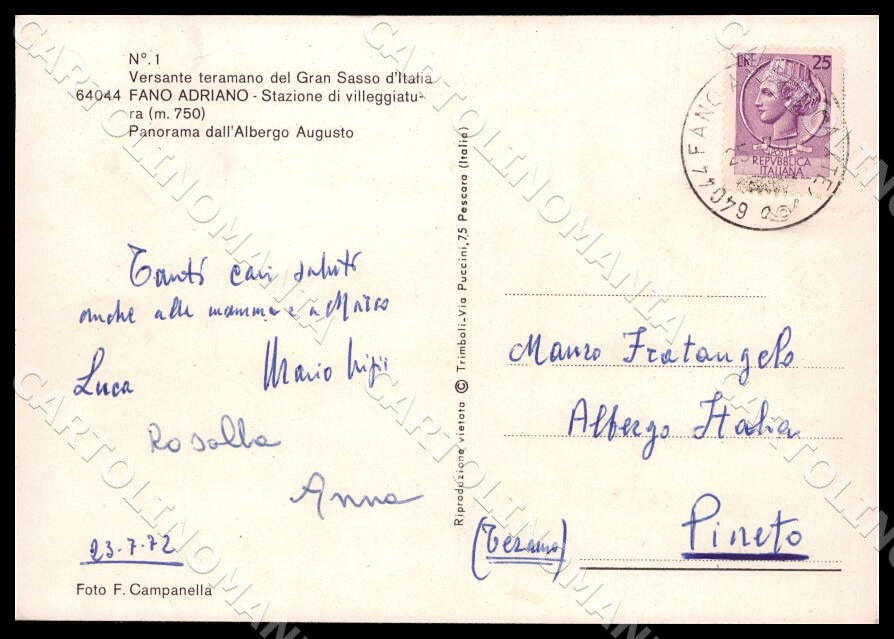 N°. 1
Versante teramano del Gran Sasso d'Italia
64044 FANO ADRIANO - Stazione di villeggiatu-
ra (m. 750)
Panorama dall'Albergo Augusto
Tanti cari saluti
anche alla mamma e a Marco
Luca
Mario
Rosalba
Anna
23-7-72
Foto F. Campanella
Riproduzione vietata © Trimboli-Via Puccini,75 Pescara (Italia)
LIRE 25
REPVBBLICA
ITALIANA
64044 FANO
Mauro Fratangelo
Albergo Italia
Pineto
(Teramo)
CARTOLINOMANIA